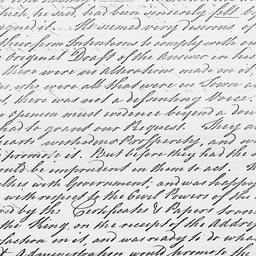 which, he said, had been sincerely felt by
signed it. He seemed very desirous of
their firm Intentions to comply with ou
Original Draft of the Answer on his
there were no alterations made in it,
s, who were all that were in Town a
t, there was not a dissenting Voice.
opinion must evidence beyond a dou
had to grant our Request. They a
years unshadow Prosperity, and w
promote it. But before they had the s
ould be imprudent in them to act. H
with Government; and was happy
with respect to the Civil Powers of the
ed by the Certificates & Papers form
the King, on the receipt of the Addre
faction in it, and was ready to do wha
Administration would promote the